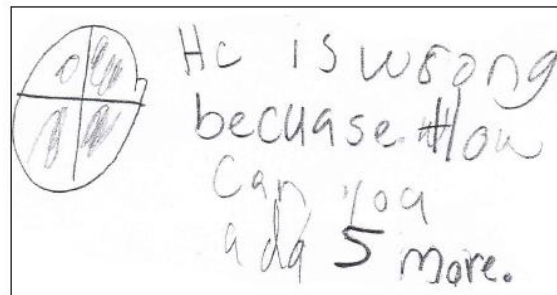 He is wrong
becuase. How
can you
add 5 more.